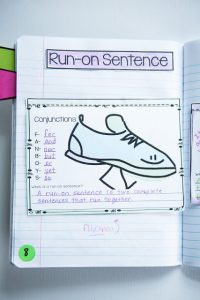 Run-on Sentence
Conjunctions
F- for
A- and
N- nor
B- but
O- or
Y- yet
S- so
What is a run-on sentence?
A run-on sentence is two complete
sentences that run together.
8